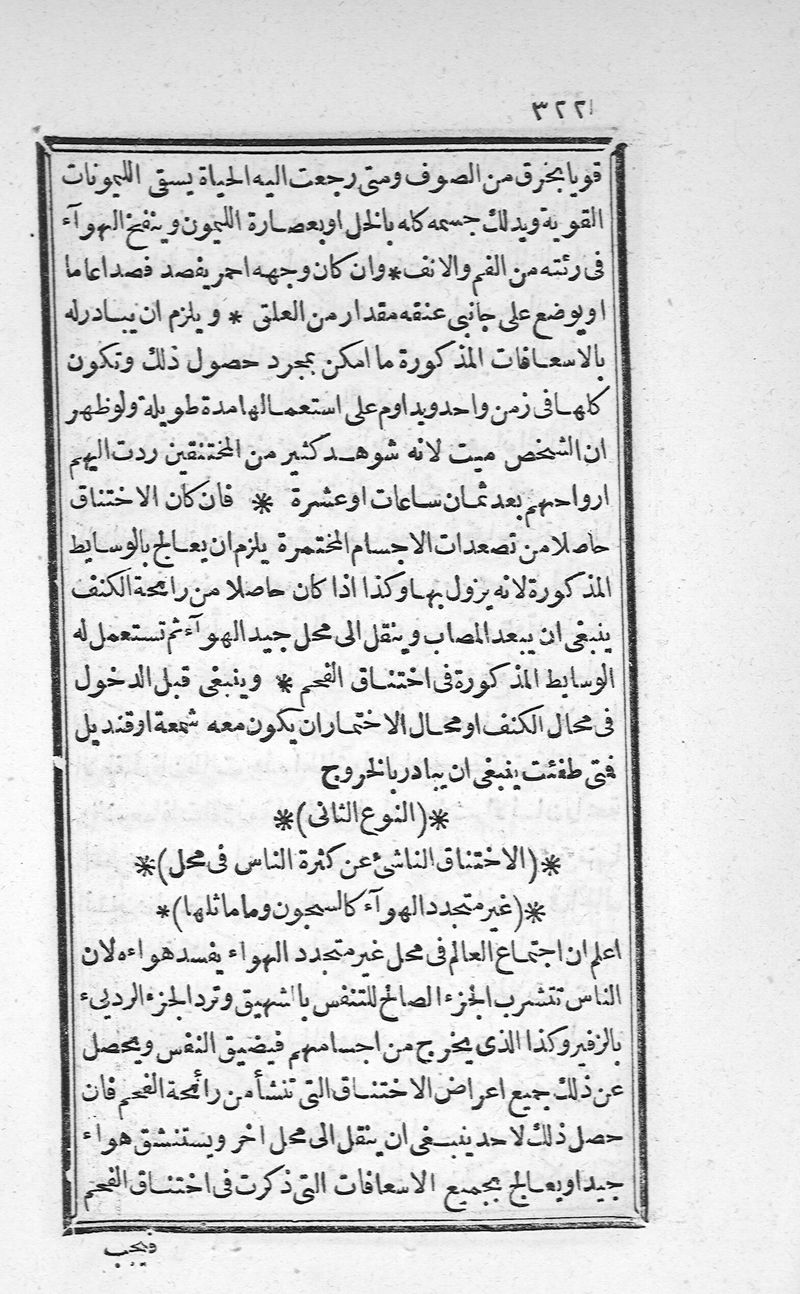 ٣٢٢
قويا بخرق من الصوف ومتى رجعت اليه الحياة يسقى الليمونات
القوية ويدلك جسمه كله بالخل او بعصارة الليمون وينفخ الهوآء
فى رئته من الفم والانف * وان كان وجهه احمر يفصد فصدا عاما
او يوضع على جانبى عنقه مقدار من العلق * ويلزم ان يبادر له
بالاسعافات المذكورة ما امكن بمجرد حصول ذلك وتكون
كلها فى زمن واحد ويداوم على استعمالها مدة طويلة ولو ظهر
ان الشخص ميت لانه شوهد كثير من المختنقين ردت اليهم
ارواحهم بعد ثمان ساعات او عشرة * فان كان الاختناق
حاصلا من تصعدات الاجسام المختمرة يلزم ان يعالج بالوسايط
المذكورة لانه يزول بها وكذا اذا كان حاصلا من رائحة الكنف
ينبغى ان يبعد المصاب وينقل الى محل جيد الهوآء ثم تستعمل له
الوسايط المذكورة فى اختناق الفحم * وينبغى قبل الدخول
فى محال الكنف او محال الاختمار ان يكون معه شمعة او قنديل
فمتى طفئت ينبغى ان يبادر بالخروج
*(النوع الثانى)*
*(الاختناق الناشئ عن كثرة الناس فى محل)*
*(غير متجدد الهوآء كالسجون وما ماثلها)*
اعلم ان اجتماع العالم فى محل غير متجدد الهواء يفسد هواءه لان
الناس تتشرب الجزء الصالح للتنفس بالشهيق وترد الجزء الرديء
بالزفير وكذا الذى يخرج من اجسامهم فيضيق النفس ويحصل
عن ذلك جميع اعراض الاختناق التى تنشأ من رائحة الفحم فان
حصل ذلك لاحد ينبغى ان ينقل الى محل اخر ويستنشق هواء
جيد او يعالج بجميع الاسعافات التى ذكرت فى اختناق الفحم
فيجب